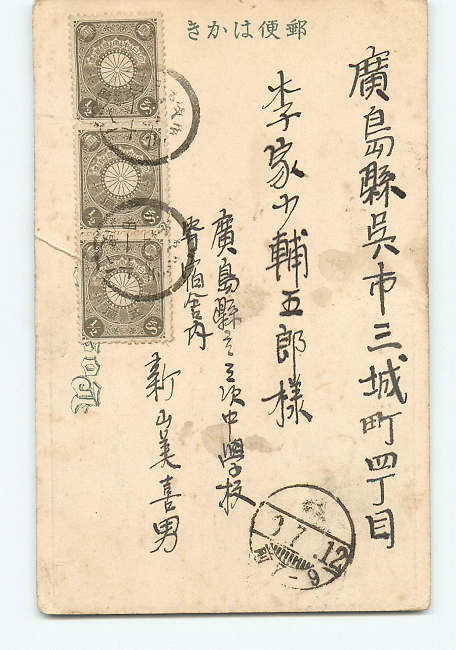 郵便はかき
廣島縣呉市三城町四丁目
李家少輔五郎様
廣島縣立三次中學校
寄宿舎内
新山美喜男
7.12